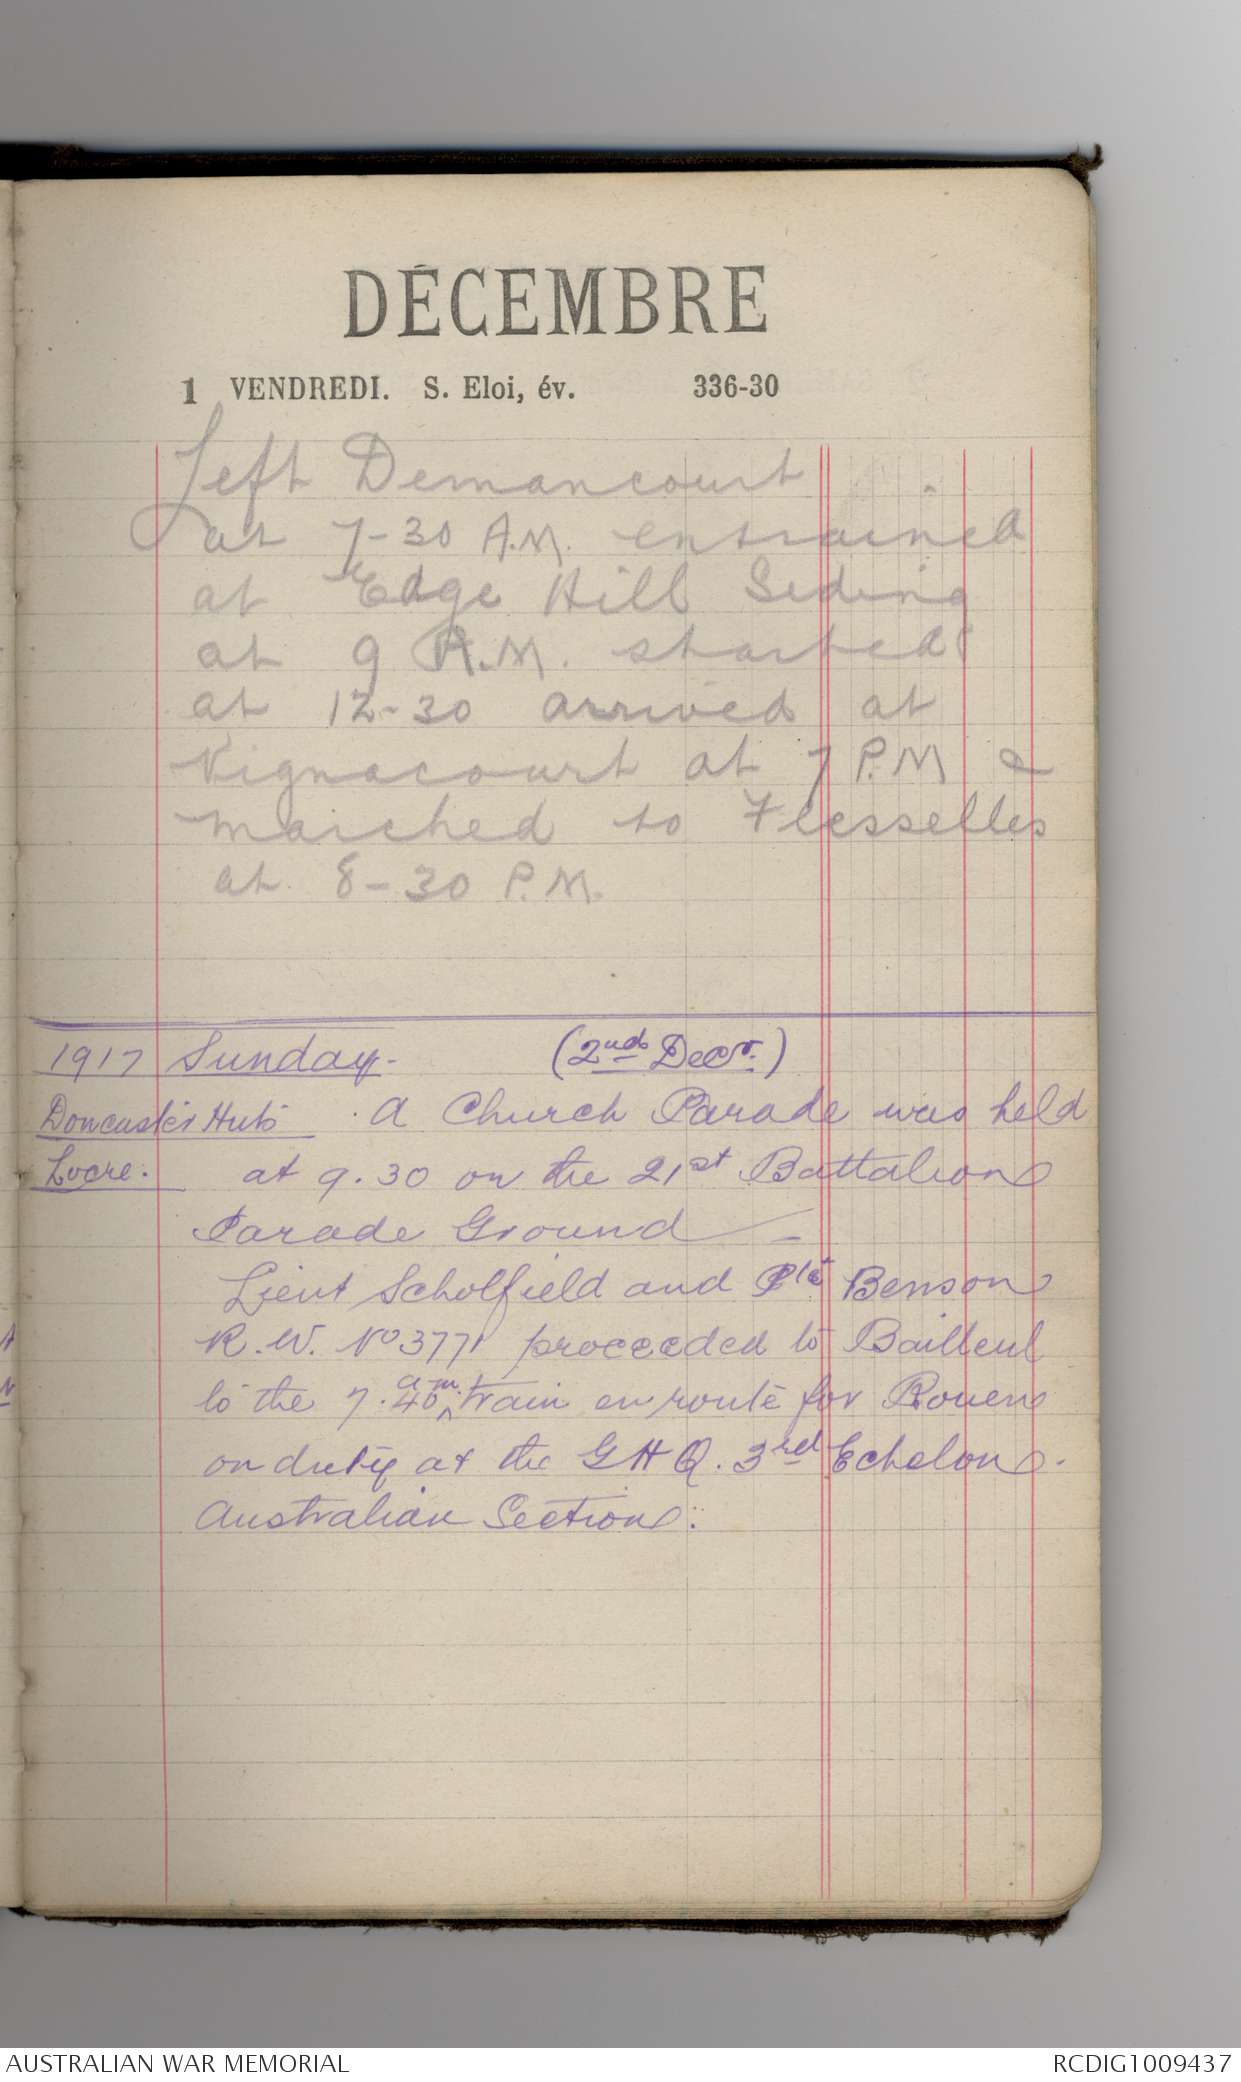 DÉCEMBRE
1 VENDREDI. S. Eloi, év. 336-30
Left Demancourt
at 7-30 A.M. entrained
at Edge Hill Siding
at 9 A.M. started
at 12-30 arrived at
Vignacourt at 7 P.M &
marched to Flesselles
at 8-30 P.M.
1917 Sunday- (2nd Decr.)
Doncaster Huts A Church Parade was held
Locre. at 9.30 on the 21st Battalion
Parade Ground —
Lieut Scholfield and Pte Benson
R.W. No 3771 proceeded to Bailleul
to the 7.40 am. train en route for Rouen
on duty at the GHQ. 3rd Echelon.
Australian Section.
AUSTRALIAN WAR MEMORIAL RCDIG1009437